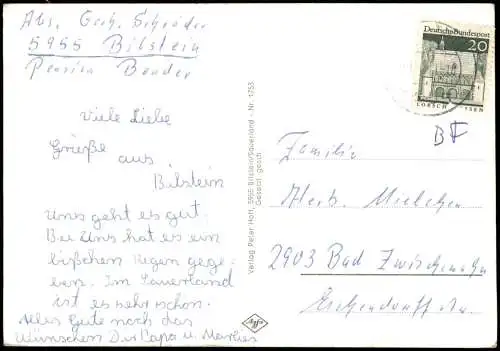 Abs. Gerh. Schröder
5955 Bilstein
Pension Bender
Viele Liebe
Grieße
aus
Bilstein
Uns geht es gut.
Bei Uns hat es ein
bißchen Regen gege-
ben. Im Sauerland
ist es sehr schön.
Alles Gute noch das
Wünschen Dir Papa u.
Verlag Peter Hoff, 5955 Bilstein/Sauerland - Nr. 1753
Gesetzl. gesch.
Agfa
Deutsche Bundespost
20
LORSCH
BF
Familie
Alb. Mielchen
2903 Bad Zwischenahn
Eichendorffstr.